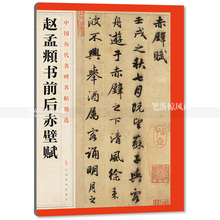 中国历代名碑名帖精选
赵孟頫书前后赤壁赋
赤壁赋
壬戌之秋七月既望蘇
舟遊于赤壁之下清風徐来
水波不興舉酒属客诵明月之
笔落惊风